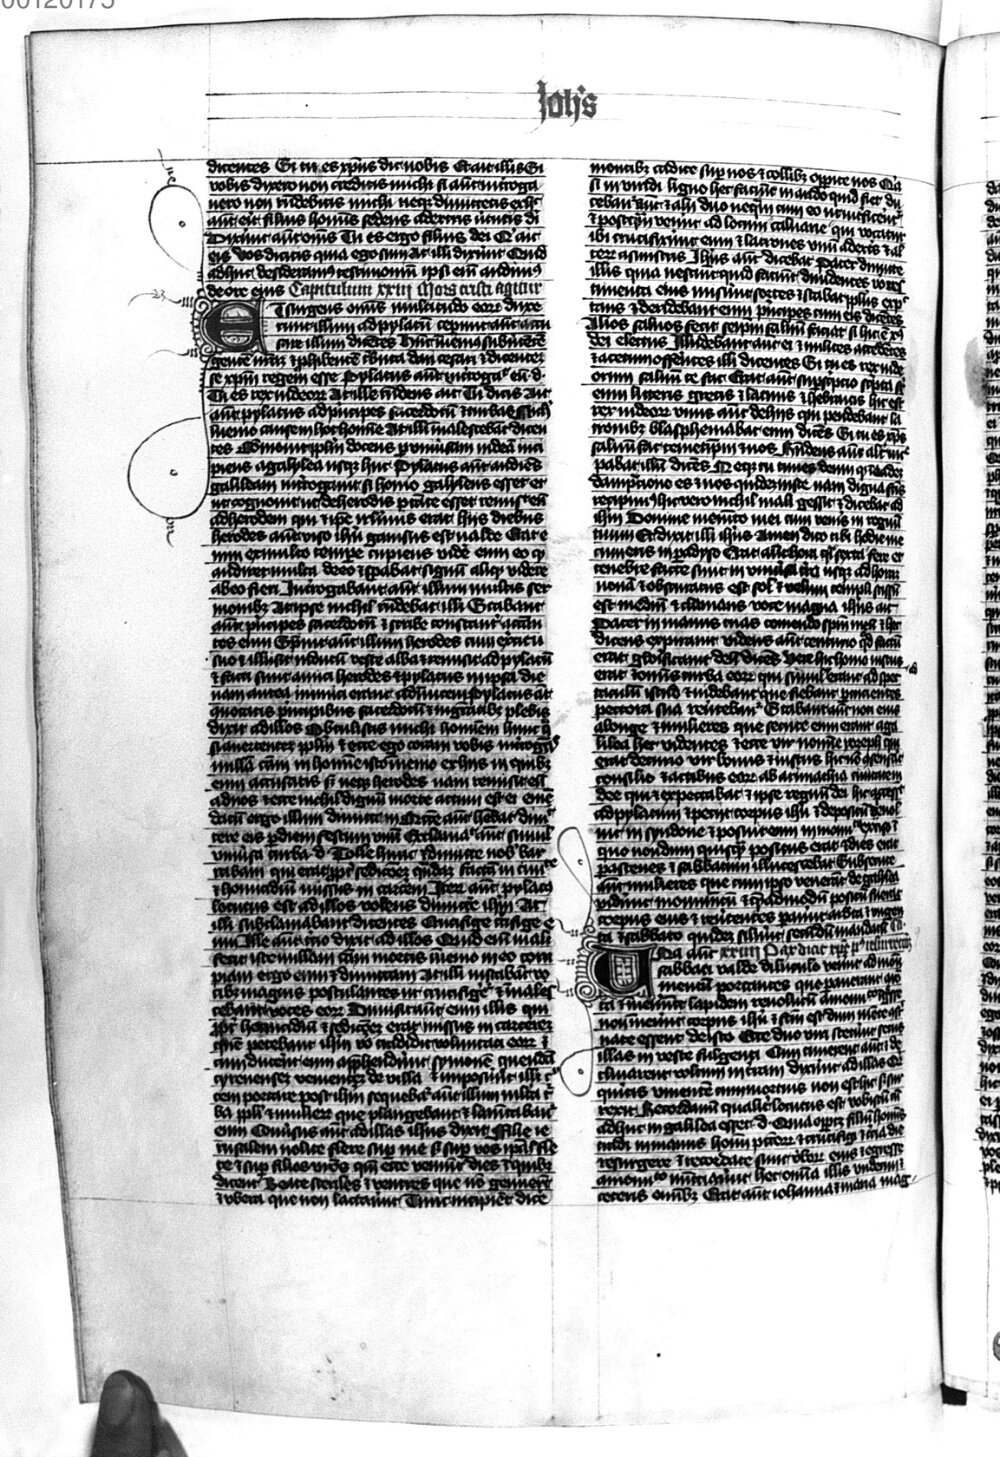 00120175
Joh's
dicentes Si tu es xpus dic nobis Et ait illis Si
vobis dixero non creditis michi si aut interroga
vero non respondebitis michi neqz dimittetis ex hoc
aut erit filius hominis sedens a dextris virtutis di
Dixerunt aut oms Tu es ergo filius dei Qi ait
eis vos dicitis quia ego sum At illi dixerunt Quid
adhuc desideramus testimonium ipsi eni audiuimus
de ore eius Capitulum xxiij
23
Et surgens omnis multitudo eorum duxe
runt illum ad pylatum ceperunt aut accu
sare illum dicentes Hunc inuenimus subuertente
gentem nram et phibente tributa dari cesari et dicentem
se xpm regem esse Pylatus aut interrogauit eum d
Tu es rex iudeorum At ille respondens ait Tu dicis Ait
aut pylatus ad principes sacerdotum et turbas Nichil
inuenio cause in hoc homine At illi inualescebant dicen
tes Commouit populum docens per uniuersam iudeam inci
piens a galylea usqz huc Pylatus aut audiens
galileam interrogauit si homo galyleus esset et
ut cognouit ut de herodis ptate esset remisit eum
ad herodem qui et ipse ihrlimis erat hiis diebus
herodes aut viso ihu gauisus est valde Erat e
nim ex multo tempore cupiens videre eum eo qd
audiret multa de eo et sperabat signum aliqd videre
ab eo fieri Interrogabat aut illum multis ser
monibz At ipse nichil respondebat illi Stabant
aut principes sacerdotum et scribe constanter accusan
tes eum Spreuit aut illum herodes cum exercitu
suo et illusit indutum veste alba et remisit ad pylatum
et facti sunt amici herodes et pylatus in ipsa die
nam antea inimici erant adinuicem Pylatus aut
uocatis principibus sacerdotum et magistratibz et plebis
dixit ad illos Obtulistis michi hominem hunc q
si auertentem populum et ecce ego coram vobis interrogans
nullam causam in homine isto inueni ex hiis in quibz
eum accusatis sed neqz herodes nam remisi vos
ad nos et ecce nichil dignum morte actum est ei eme
datum ergo illum dimittam Necesse aut habebat dimit
tere eis per diem festum vnum Exclamauit aut simul
vniuersa turba d Tolle hunc et dimitte nobis bar
rabam qui erat propter seditionem quandam factam in ciuitate
et homicidium missus in carcerem Iterum aut pylatus
locutus est ad illos volens dimittere ihm At
illi subclamabant dicentes Crucifige crucifige e
um Ille aut tercio dixit ad illos Quid eni mali
fecit iste nullam causam mortis inuenio in eo corri
piam ergo eum et dimittam At illi instabant vo
cibz magnis postulantes ut crucifigeretur et inuales
cebant voces eorum
ppter homicidium et seditionem erat missus in carcerem
quem petebant ihm vo tradidit voluntati eorum et
cum ducerent eum apprehenderunt symonem quendam
cyrenensem venientem de villa et imposuerunt illi c
cem portare post ihm sequebatur aut illum multa t
ba populi et mulierum que plangebant et lamentabantur
eum Conuersus aut ad illas ihus dixit Filie ie
rusalem nolite flere sup me sed sup vos ipsas fle
te et sup filios vros qm ecce venient dies in quibz
dicent Beate steriles et ventres que non genuerunt
et vbera que non lactauerunt Tunc incipient dice
montibz cadite sup nos et collibz operite nos Quia
si in viridi ligno hec faciunt in arido quid fiet du
cebantur aut et alii duo nequam cum eo ut interficerentur
et postqm venerunt ad locum caluarie qui vocatur
ibi crucifixerunt eum et latrones vnum a dextris et al
terum a sinistris Ihus aut dicebat Pater dimitte
illis quia nesciunt quid faciunt diuidentes vo ves
timenta eius miserunt sortes et stabat populus expec
tans et deridebant eum principes cum eis dicentes
Alios saluos fecit seipm saluum faciat si hic est xpus
dei electus Illudebant aut ei et milites accedentes
et acetum offerentes illi dicentes Si tu es rex iude
orum saluum te fac Erat aut supscriptio scripta sup
eum litteris grecis et latinis et hebraicis hic est
rex iudeorum vnus aut de hiis qui pendebant la
tronibz blasphemabat eum dicens Si tu es xpus
saluum fac temetipm et nos Respondens aut alter incre
pabat illum dicens Neqz tu times deum qd in eadem
dampnatione es et nos quidem iuste nam digna factis
recipimus hic vero nichil mali gessit et dicebat ad
ihm Domine memento mei cum venis in regnum
tuum Et dixit illi ihus Amen dico tibi hodie me
cum eris in padyso Erat aut hora qsi sexta fere et
tenebre facte sunt in vniuersa terra usqz ad horam
nonam et obscuratus est sol et velum templi scissum
est medium et clamans voce magna ihus ait
Pater in manus tuas comendo spm meum et hec
dicens expirauit videns aut centurio qd factum
erat glorificauit deum dicens Vere hic homo iustus
erat et omnis turba eorum qui simul erant ad spec
taculum istud et videbant que fiebant percucientes
pectora sua reuertebantur Stabant aut noti eius
a longe et mulieres que secute eum erant a ga
lilea hec videntes et ecce vir nomine ioseph qui
erat decurio vir bonus et iustus hic non consenserat
consilio et actibus eorum ab arimathia ciuitate iu
dee qui expectabat et ipse regnum dei hic accessit
ad pylatum et petiit corpus ihu et depositum inuol
uit in syndone et posuit eum in monumento exciso in
quo nondum quisqm positus erat et dies erat
parasceues et sabbatum illucescebat Subsecute
aut mulieres que cum ipso venerant de galilea
viderunt monumentum et quemadmodum positum fuerat
corpus eius et reuertentes parauerunt aromata et ungen
ta et sabbato quidem siluerunt secundum mandatum Ca
xxiiij
Una aut
sabbati valde diluculo venerunt ad monu
mentum portantes que parauerant aro
mata et inuenerunt lapidem reuolutum a monumento et ingresse
non inuenerunt corpus ihu et factum est dum mente cons
nate essent de isto Ecce duo viri steterunt secus
illas in veste fulgenti Cum timerent aut et de
clinarent vultum in terram dixerunt ad illas Quid
queritis viuentem cum mortuis non est hic sed sur
rexit Recordamini qualiter locutus est vobis cum
adhuc in galilea esset d Quia oportet filium hominis
tradi in manus hominum peccatorum et crucifigi et tercia die
resurgere et recordate sunt verborum eius et egresse
a monumento nunciauerunt hec omnia illis vndecim et
ceteris omnibz Erat aut iohanna et maria mag